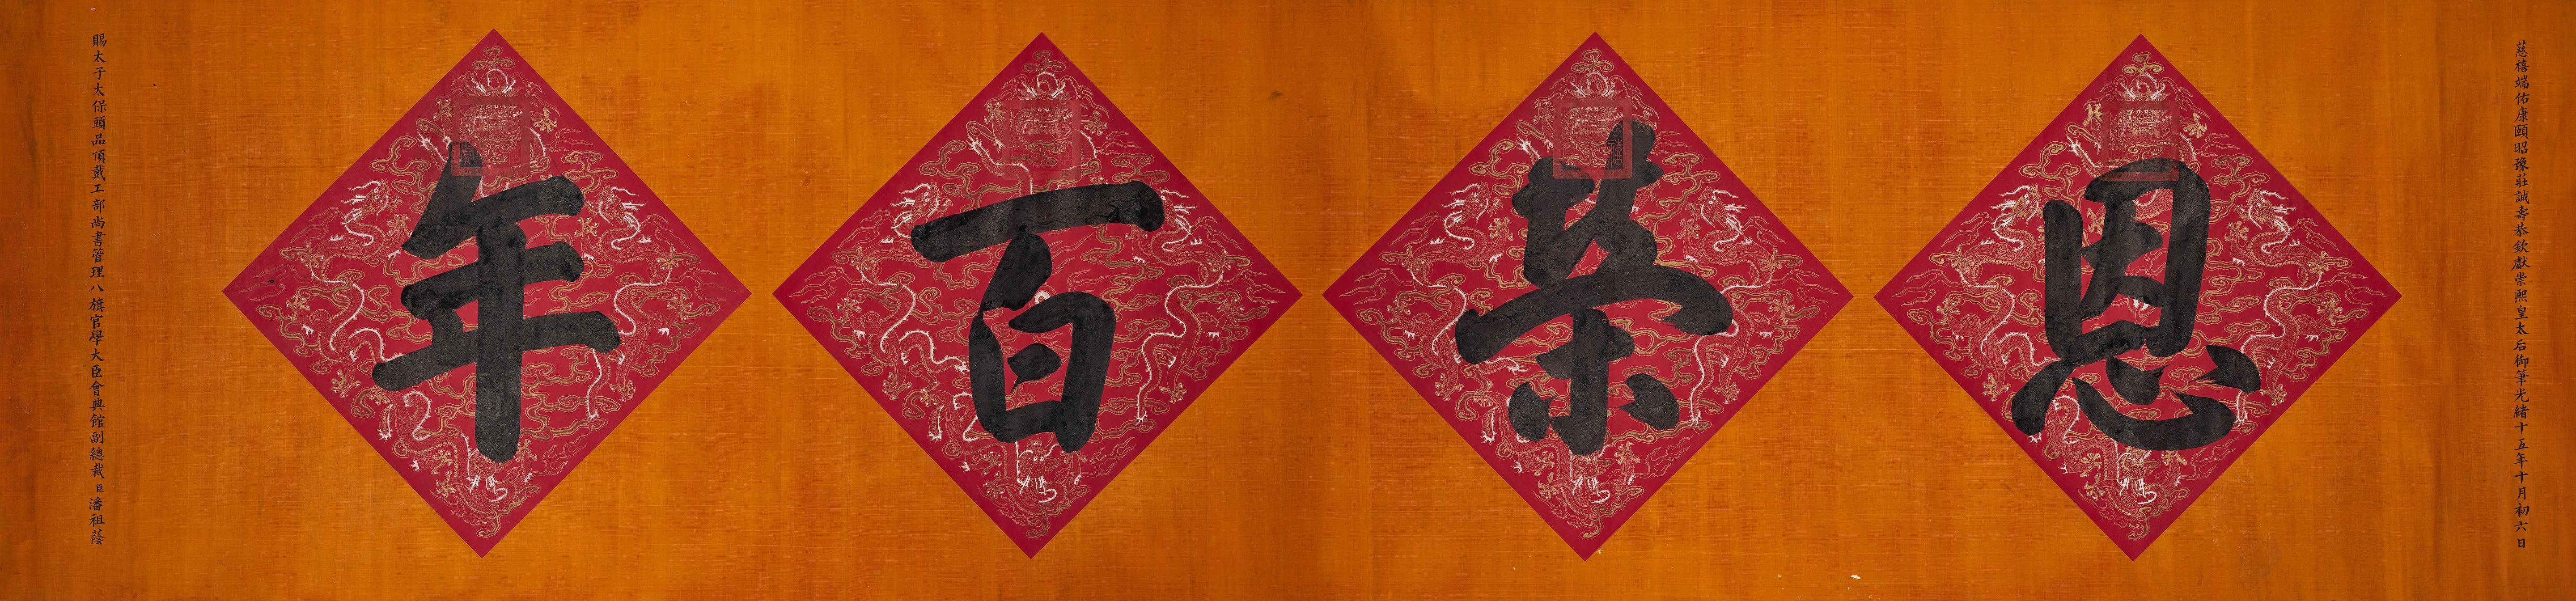 慈禧端佑康頤昭豫莊誠壽恭欽獻崇熙皇太后御筆光緒十五年十月初六日
恩荣百年
賜太子太保頭品頂戴工部尚書管理八旗官學大臣會典館副總裁臣潘祖蔭